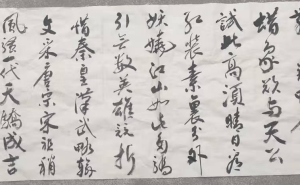 蜡象欲与天公
試比高須晴日看
红装素裹分外
妖娆江山如此多嬌
引無数英雄竞折
惜秦皇漢武略輸
文采唐宗宋祖稍
風骚一代天驕成吉